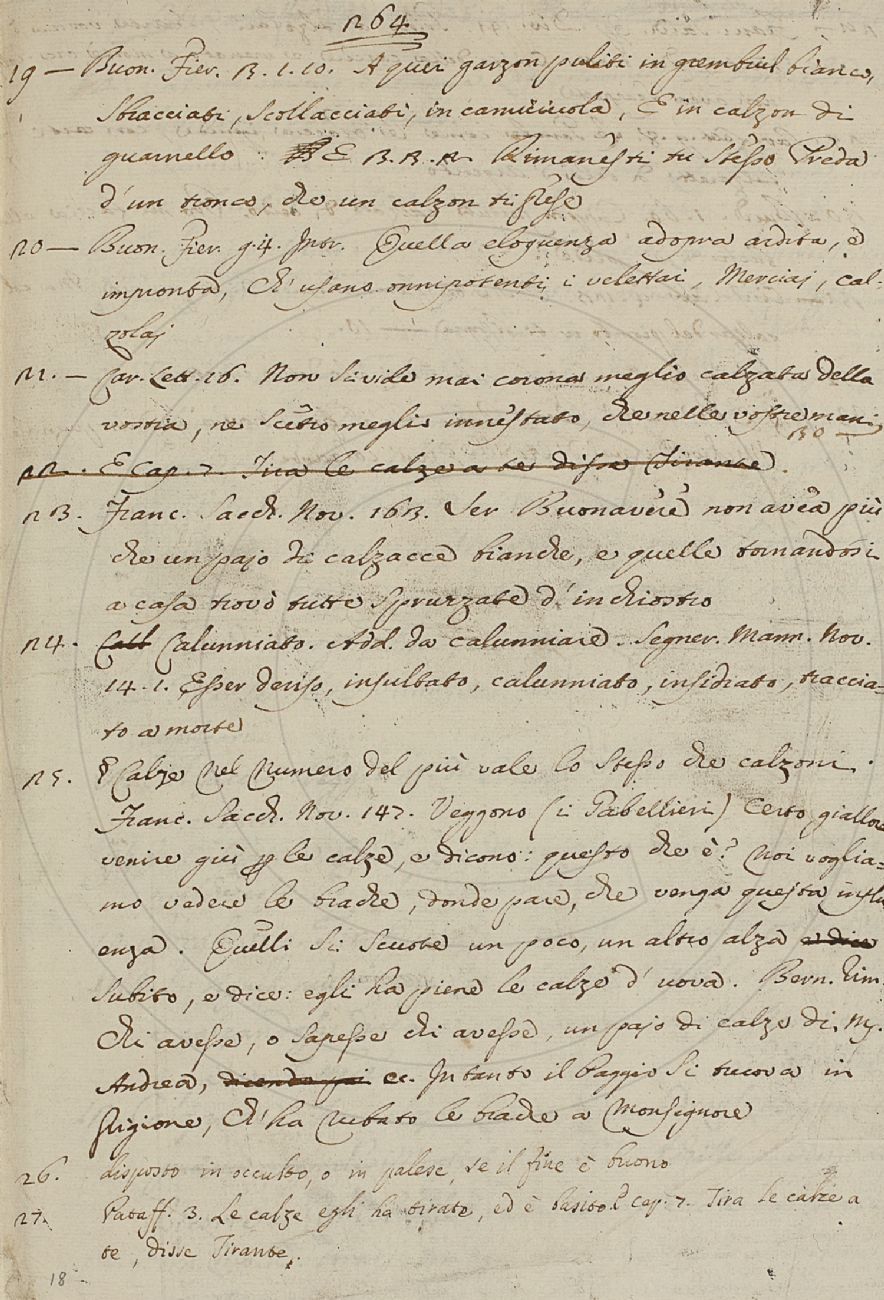 264
19 — Buon. Fier. 3. 1. 10. A quei garzon puliti in grembiul bianco,
sbracciati, scollacciati, in camiciuola, E in calzon di
guarnello E 3. 3. 2. Rimanesti tu stesso Preda
d'un tronco, che un calzon ti prese
20 — Buon. Fier. g. 4. Intr. Quella eloquenza adopra ardita, e
impronta, Ch'usano onnipotenti i velettai, Merciaj, cal-
zolaj
21. — Car. Lett. 16. Non si vide mai corona meglio calzata della
vostra, ne scetro meglio innestato, che nelle vostre mani
130 —
22. E Cap. 7. Tira le calze a te disse Tirante.
23. Franc. Sacch. Nov. 163. Ser Buonavere non avea più
che un pajo di calzacce bianche, e quelle tornandosi
a casa trovò tutte sprurzate d'inchiostro
24. Call Calunniato. Add. da calunniare. Segner. Mann. Nov.
14. 1. Esser deriso, insultato, calunniato, insidiato, traccia=
to a morte
25. § Calze Nel Numero del più vale lo stesso che calzoni.
Franc. Sacch. Nov. 147. Veggono (i Gabellieri) Certo giallore
venire giù p le calze, e dicono: questo che è? Noi voglia=
mo vedere le brache, donde pare, che venga questa influ
enza. Quelli si scuote un poco, un altro alza e dice
subito, e dice: egli ha piene le calze d'uova. Bern. Rim.
Chi avesse, o sapesse chi avesse, un pajo di calze di M.
Andrea, dicendo poi ec. Intanto il paggio si truova in
prigione, Ch'ha rubato le brache a Monsignore
26. disposto in occulto, o in palese, se il fine è buono
27. Pataff. 3. Le calze egli ha tirate, ed è basito. E cap. 7. Tira le calze a
te, disse Tirante.
18